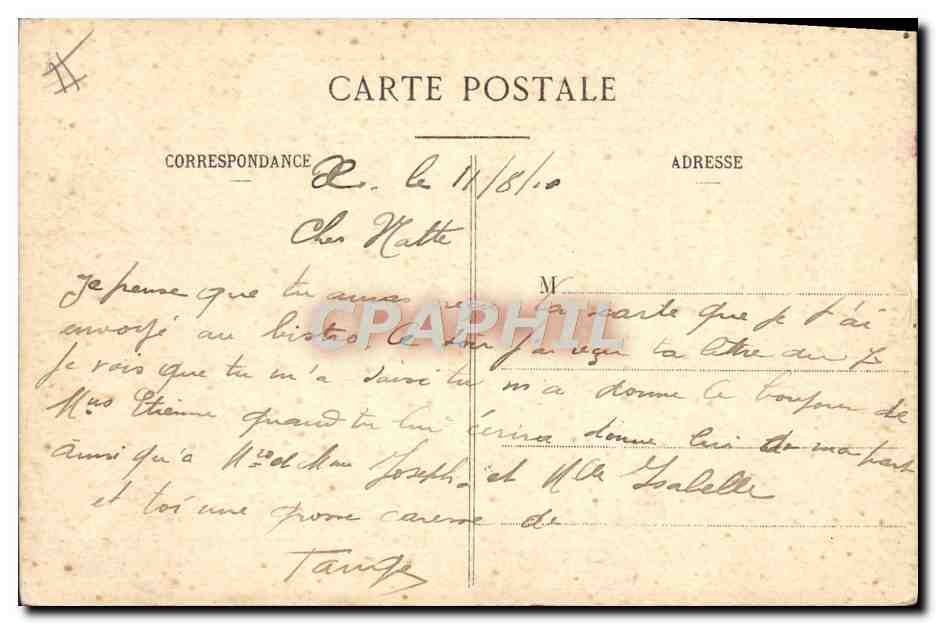 CARTE POSTALE
CORRESPONDANCE
ADRESSE
le 11/8/10
Cher Natte
M
Je pense que tu auras la carte que je t'ai
envoyé au bistro, ce soir j'ai reçu ta lettre du
je vois que tu m'a tu m'a donne le bonjour de
Etienne quand tu lui écrira donne lui de ma part
ainsi qu'a Mr et Mme Joseph et Mlle Isabelle
et toi une grosse caresse de
CPAPHIL